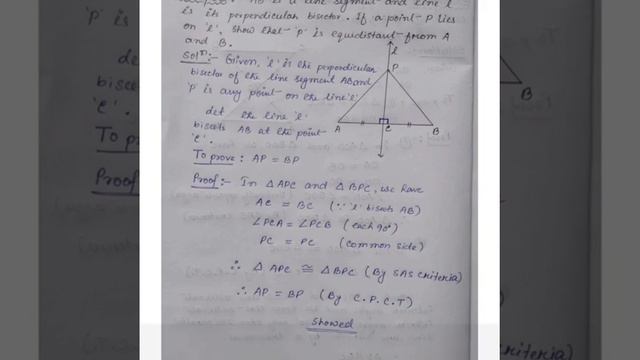 AB is a line segment and line l
is its perpendicular bisector. If a point P lies
on 'l', show that 'P' is equidistant from A
and B.
Solⁿ:- Given, 'l' is the perpendicular
bisector of the line segment AB and
'P' is any point on the line 'l'
Let the line 'l'
bisects AB at the point
'C'.
To prove: AP = BP
Proof:- In △APC and △BPC, we have
AC = BC (∵ 'l' bisects AB)
∠PCA = ∠PCB (each 90°)
PC = PC (common side)
∴ △APC ≅ △BPC (By SAS criteria)
∴ AP = BP (By C.P.C.T)
Showed
l
P
A
C
B
'P' is
bisects
'C'.
To pro
Proof:-
B
criteria)